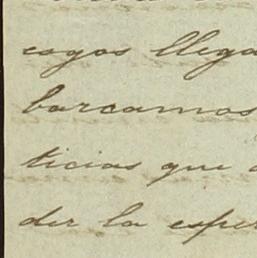 cayos llega
barcamos
ticias que
der la esper